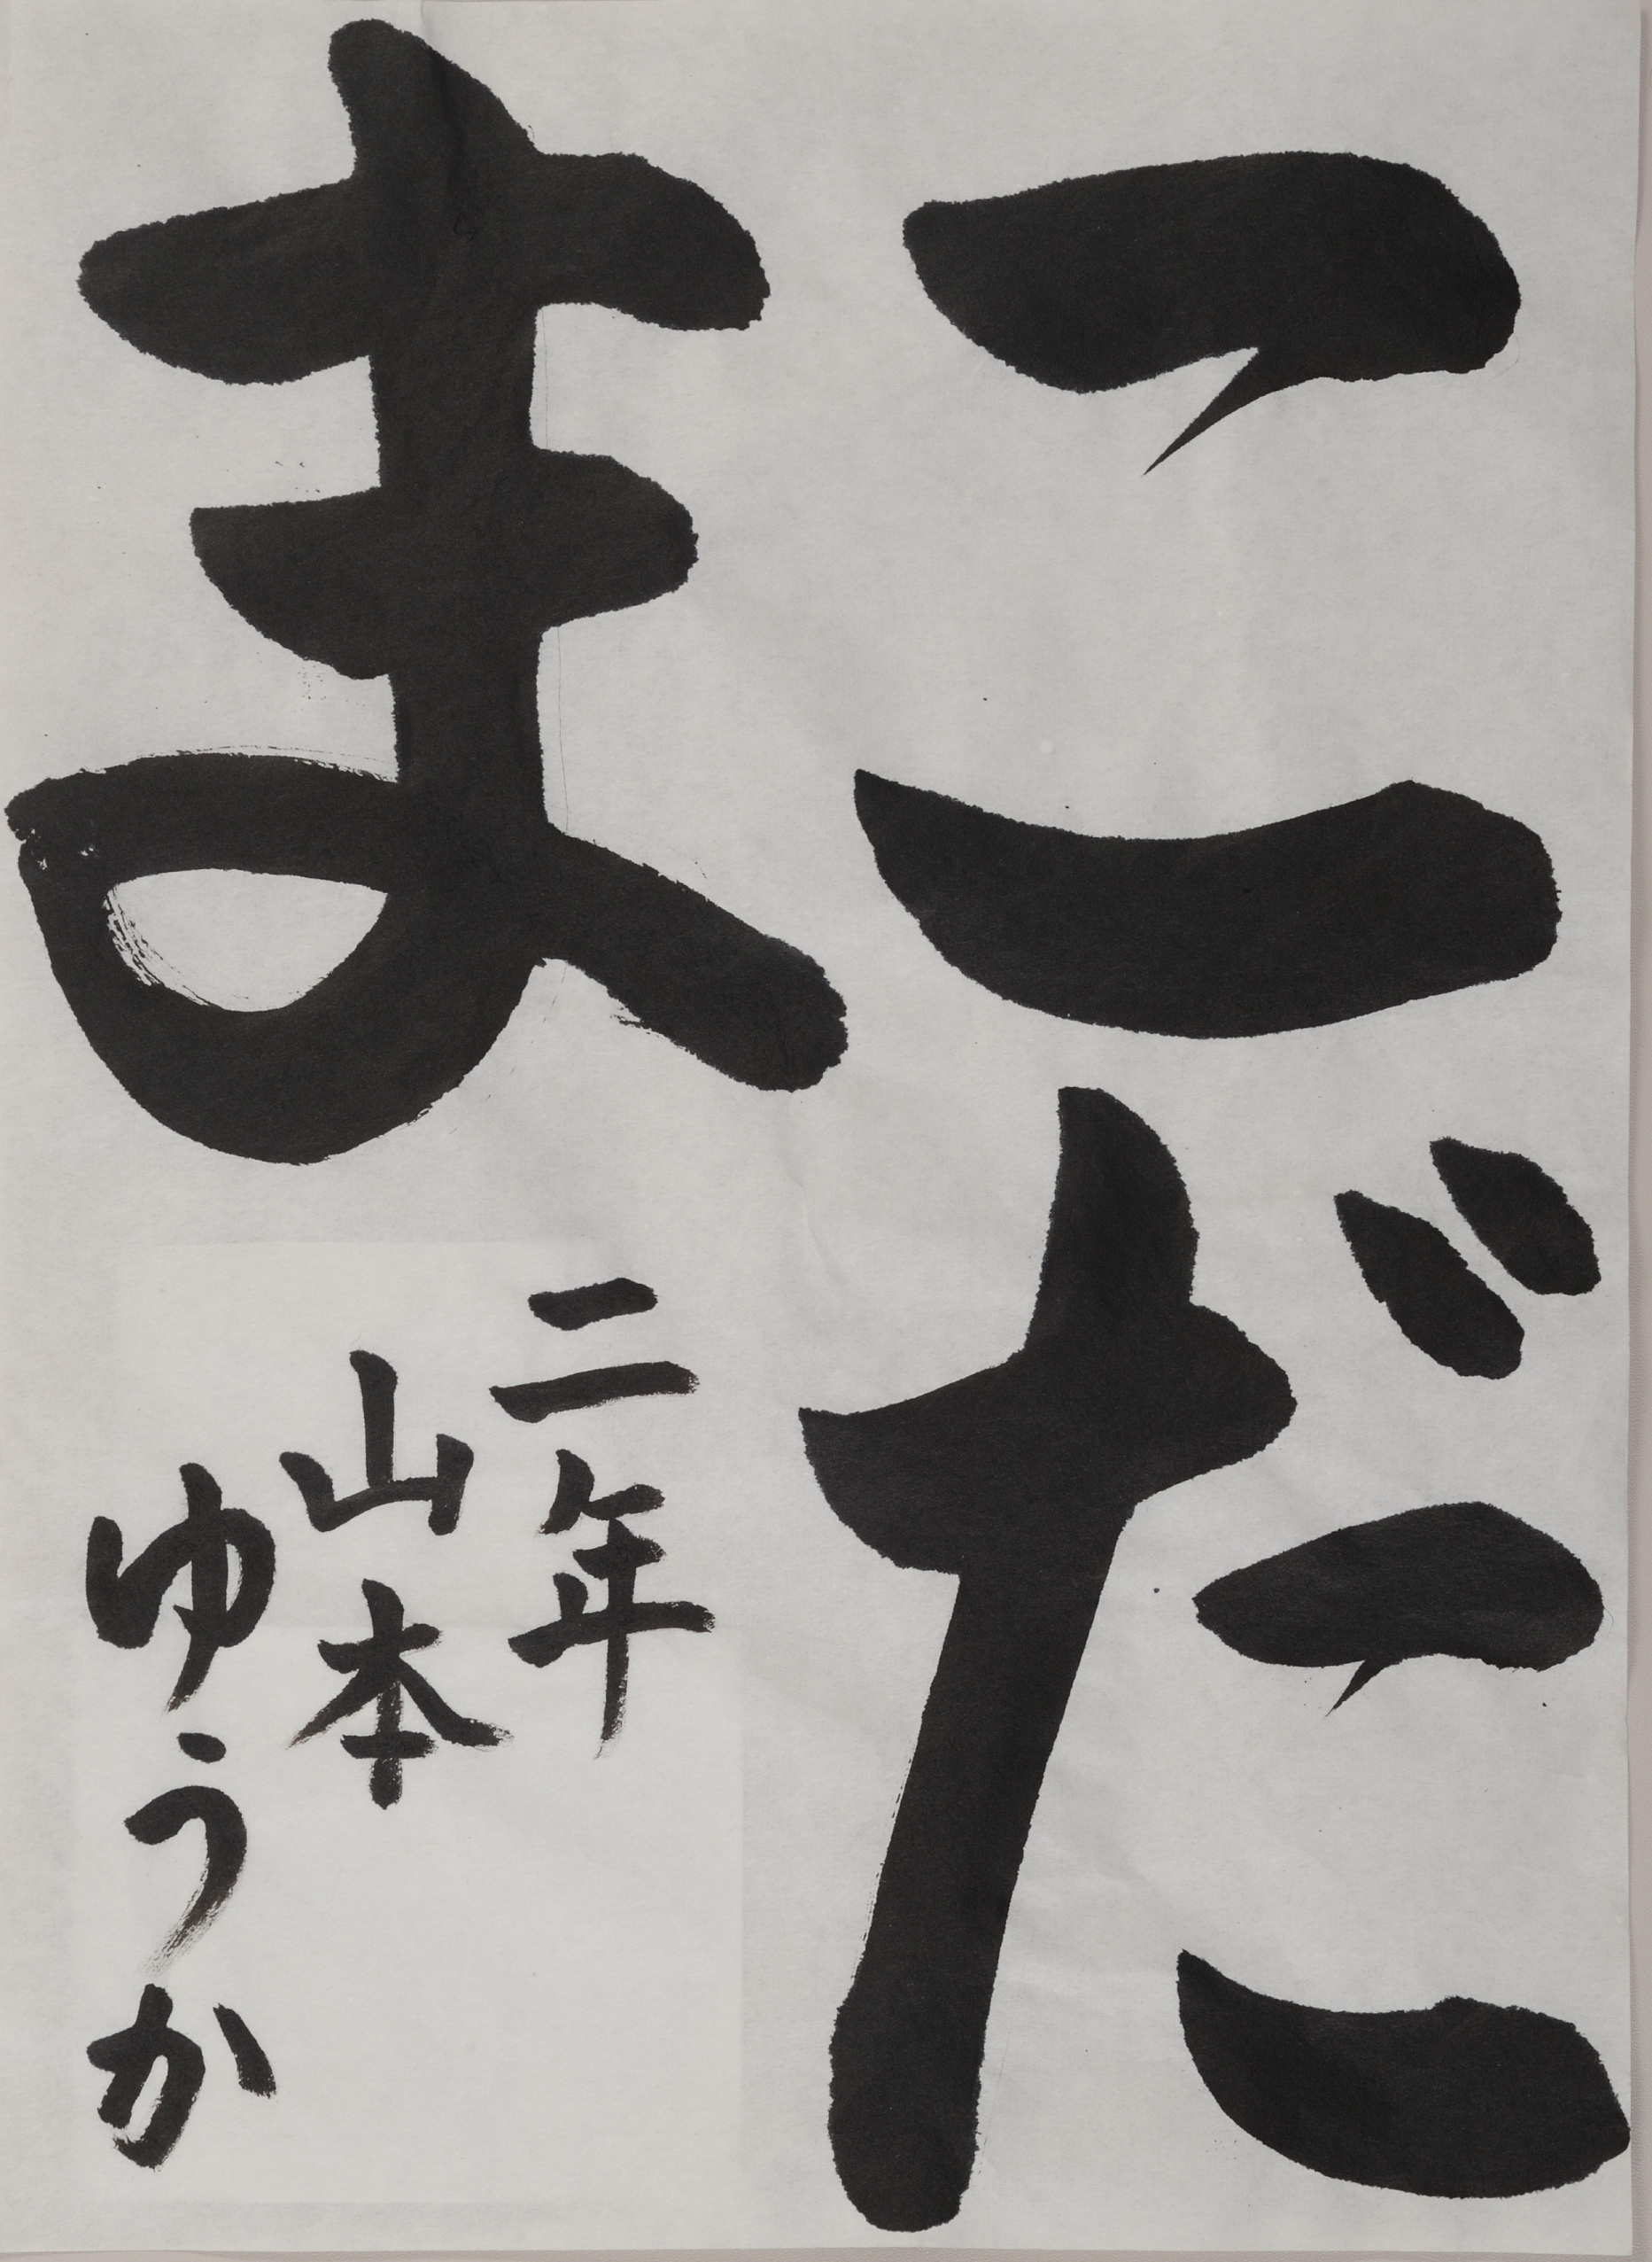 こだ
ま
二年
山本
ゆうか